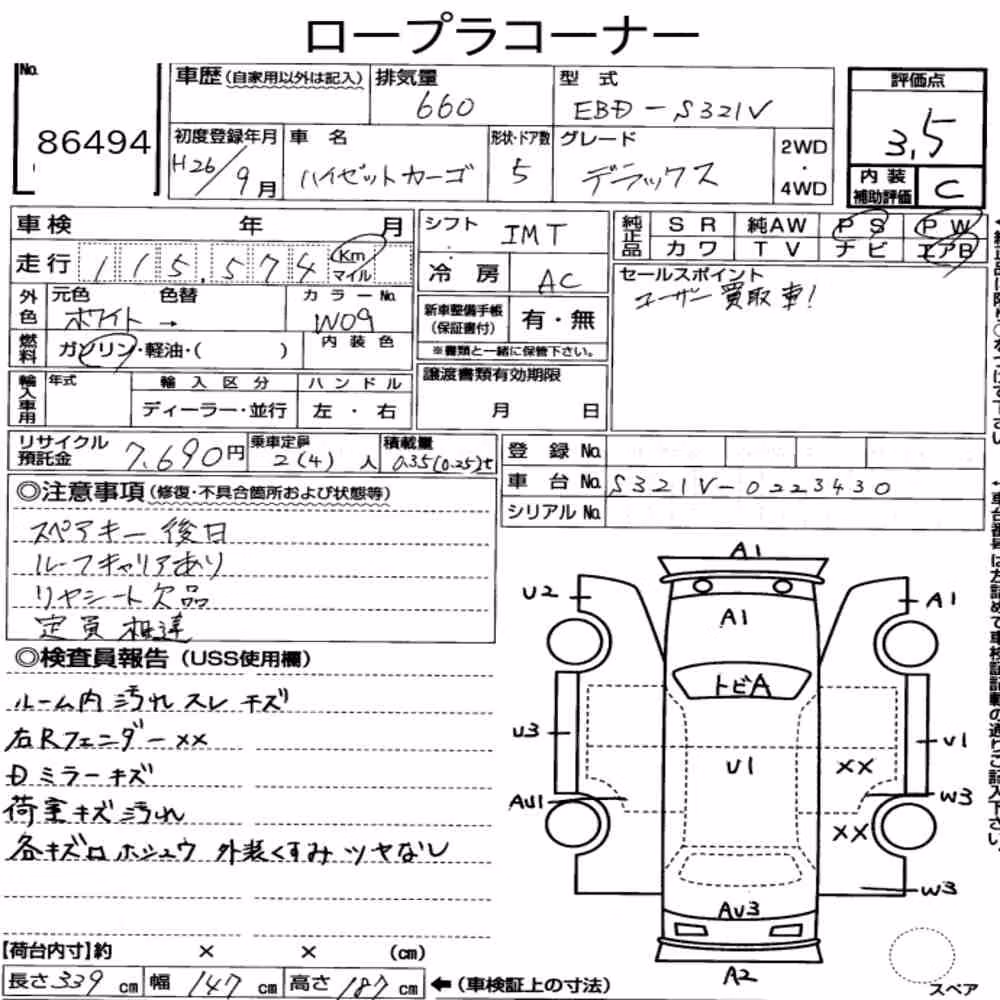 ロープラコーナー
No.
86494
車歴(自家用以外は記入)
排気量
660
型 式
EBD-S321V
評価点
3,5
初度登録年月
H26/9月
車 名
ハイゼットカーゴ
形状・ドア数
5
グレード
デラックス
2WD
・
4WD
内装
補助評価
C
車検 年 月
シフト
IMT
純正品
SR 純AW PS PW
カワ TV ナビ エアB
走行 115,574 Km
マイル
冷房
AC
セールスポイント
ユーザー買取車!
外色
元色 色替
ホワイト →
カラーNo.
W09
新車整備手帳
(保証書付)
有・無
※書類と一緒に保管下さい。
燃料
ガソリン・軽油・( )
内装色
輸入車用
年式
輸入区分
ディーラー・並行
ハンドル
左・右
譲渡書類有効期限
月 日
リサイクル
預託金
7,690円
乗車定員
2(4)人
積載量
0.35(0.25)t
登録No.
車台No. S321V-0223430
シリアルNo.
◎注意事項(修復・不具合箇所および状態等)
スペアキー後日
ルーフキャリアあり
リヤシート欠品
定員相違
◎検査員報告(USS使用欄)
ルーム内汚れスレキズ
右Rフェンダー××
Dミラーキズ
荷室キズ汚れ
各キズロホシュウ 外装くすみツヤなし
A1
U2
A1
A1
トビA
U3
U1
U1
XX
AU1
W3
XX
W3
AU3
A2
スペア
【荷台内寸】約 × × (cm)
長さ339cm 幅147cm 高さ187cm ←(車検証上の寸法)
車台番号は左詰めで車検証記載の通りご記入下さい。